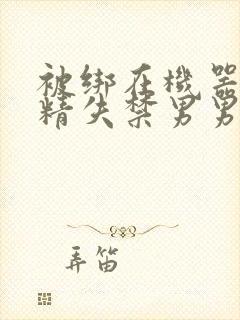 被绑在機器
精失禁男男
弄笛